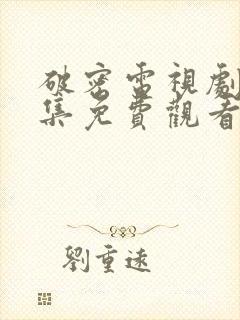 破密電視劇
集免費觀看
劉重遠